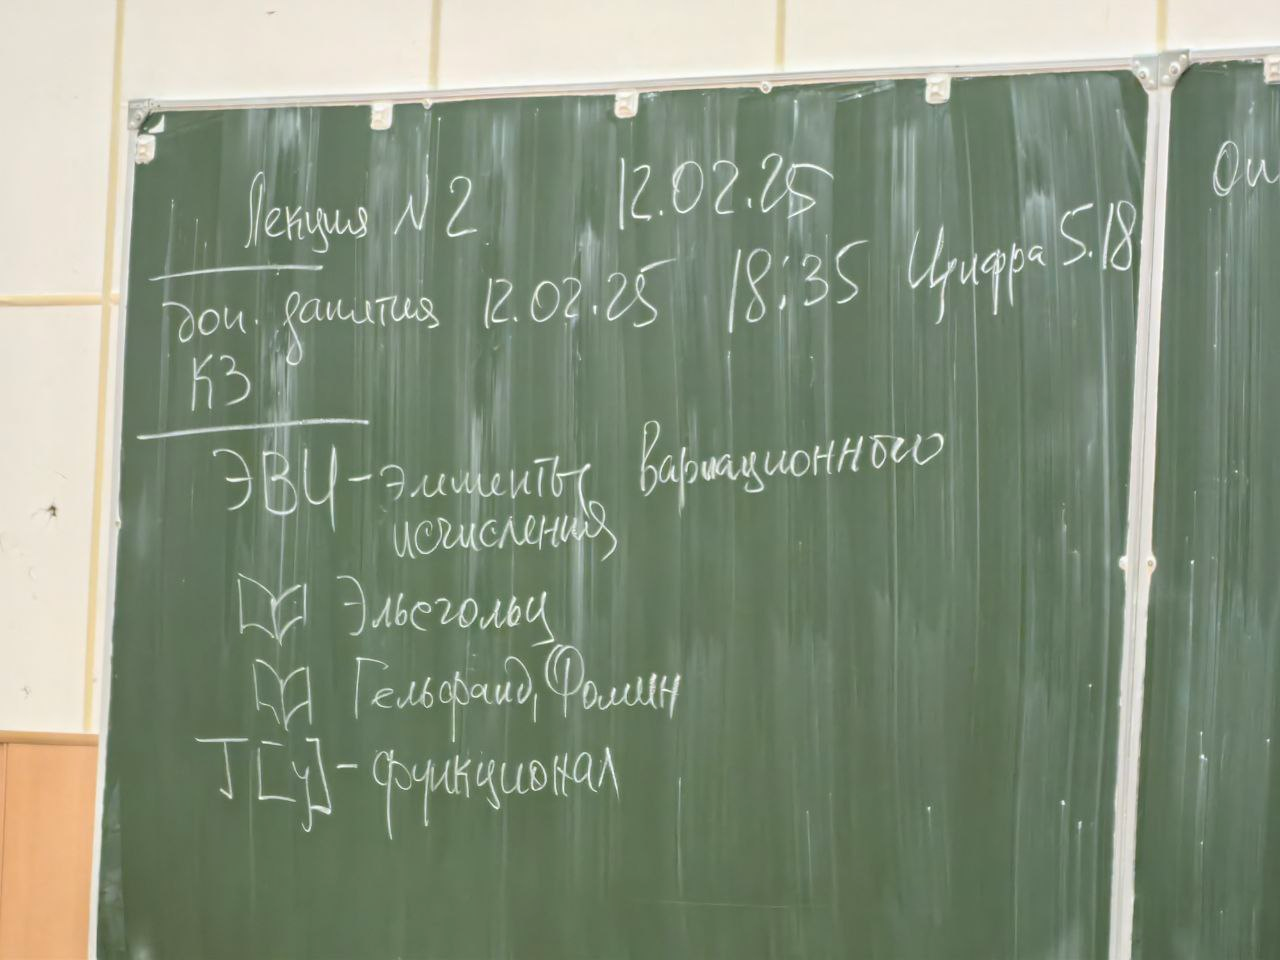 Лекция №2 12.02.25
доп. занятия 12.02.25 18:35 Цифра 5.18
КЗ
ЭВИ - элементы вариационного
исчисления
Эльсгольц
Гельфанд, Фомин
J[y] - функционал
Оп